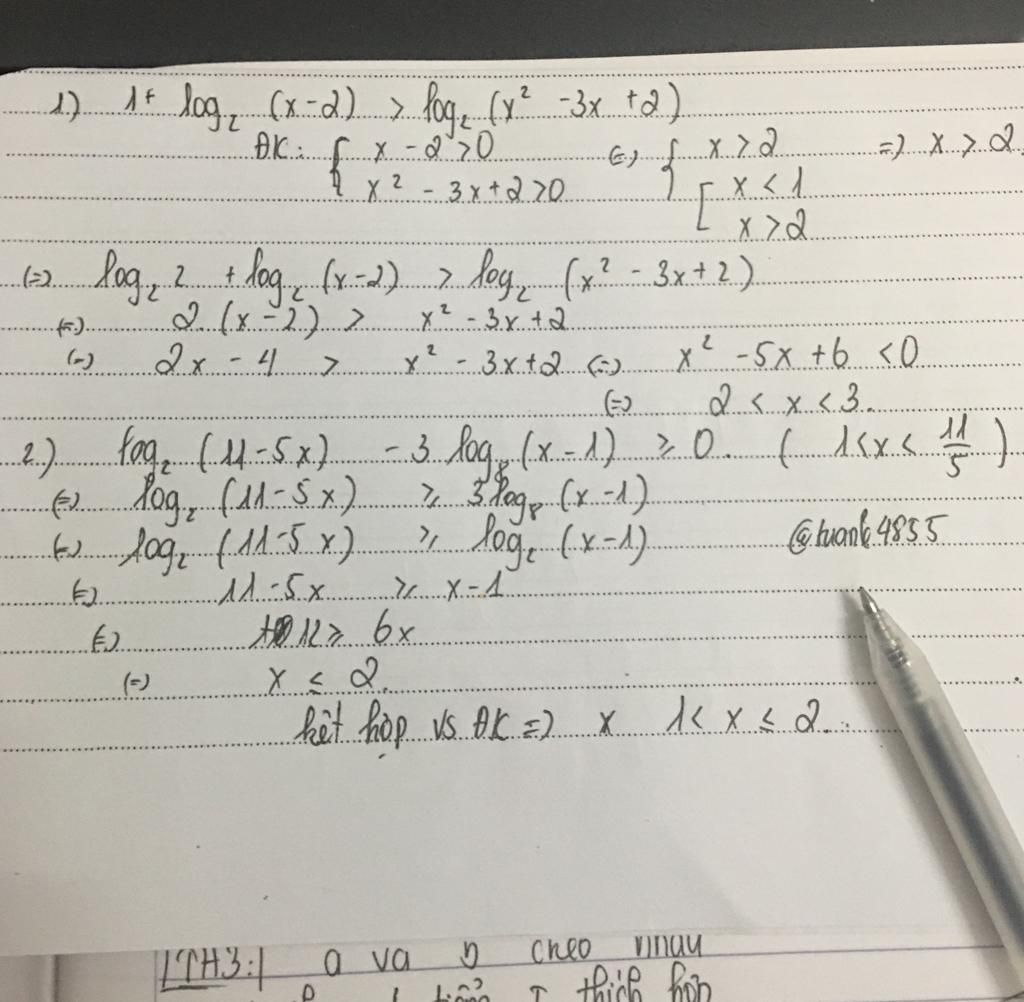 1) 1+ log₂ (x-2) > log₂ (x² -3x +2)
ĐK: { x - 2 > 0 (=) { x > 2 => x > 2
x² - 3x + 2 > 0 [ x < 1
x > 2
(=) log₂ 2 + log₂ (x-2) > log₂ (x² - 3x + 2)
(=) 2. (x-2) > x² - 3x + 2
(=) 2x - 4 > x² - 3x + 2 (=) x² - 5x + 6 < 0
(=) 2 < x < 3.
2.) log₂ (11-5x) - 3 log₈ (x-1) ≥ 0. ( 1<x< 11/5 )
(=) log₂ (11-5x) ≥ 3log₈ (x-1)
(=) log₂ (11-5x) ≥ log₂ (x-1)
(=) 11-5x ≥ x-1
(=) 12 ≥ 6x
(=) x ≤ 2.
kết hợp vs ĐK => x 1< x ≤ 2.
@tuank4855
TH3: a và b chéo nhau
thích hợp